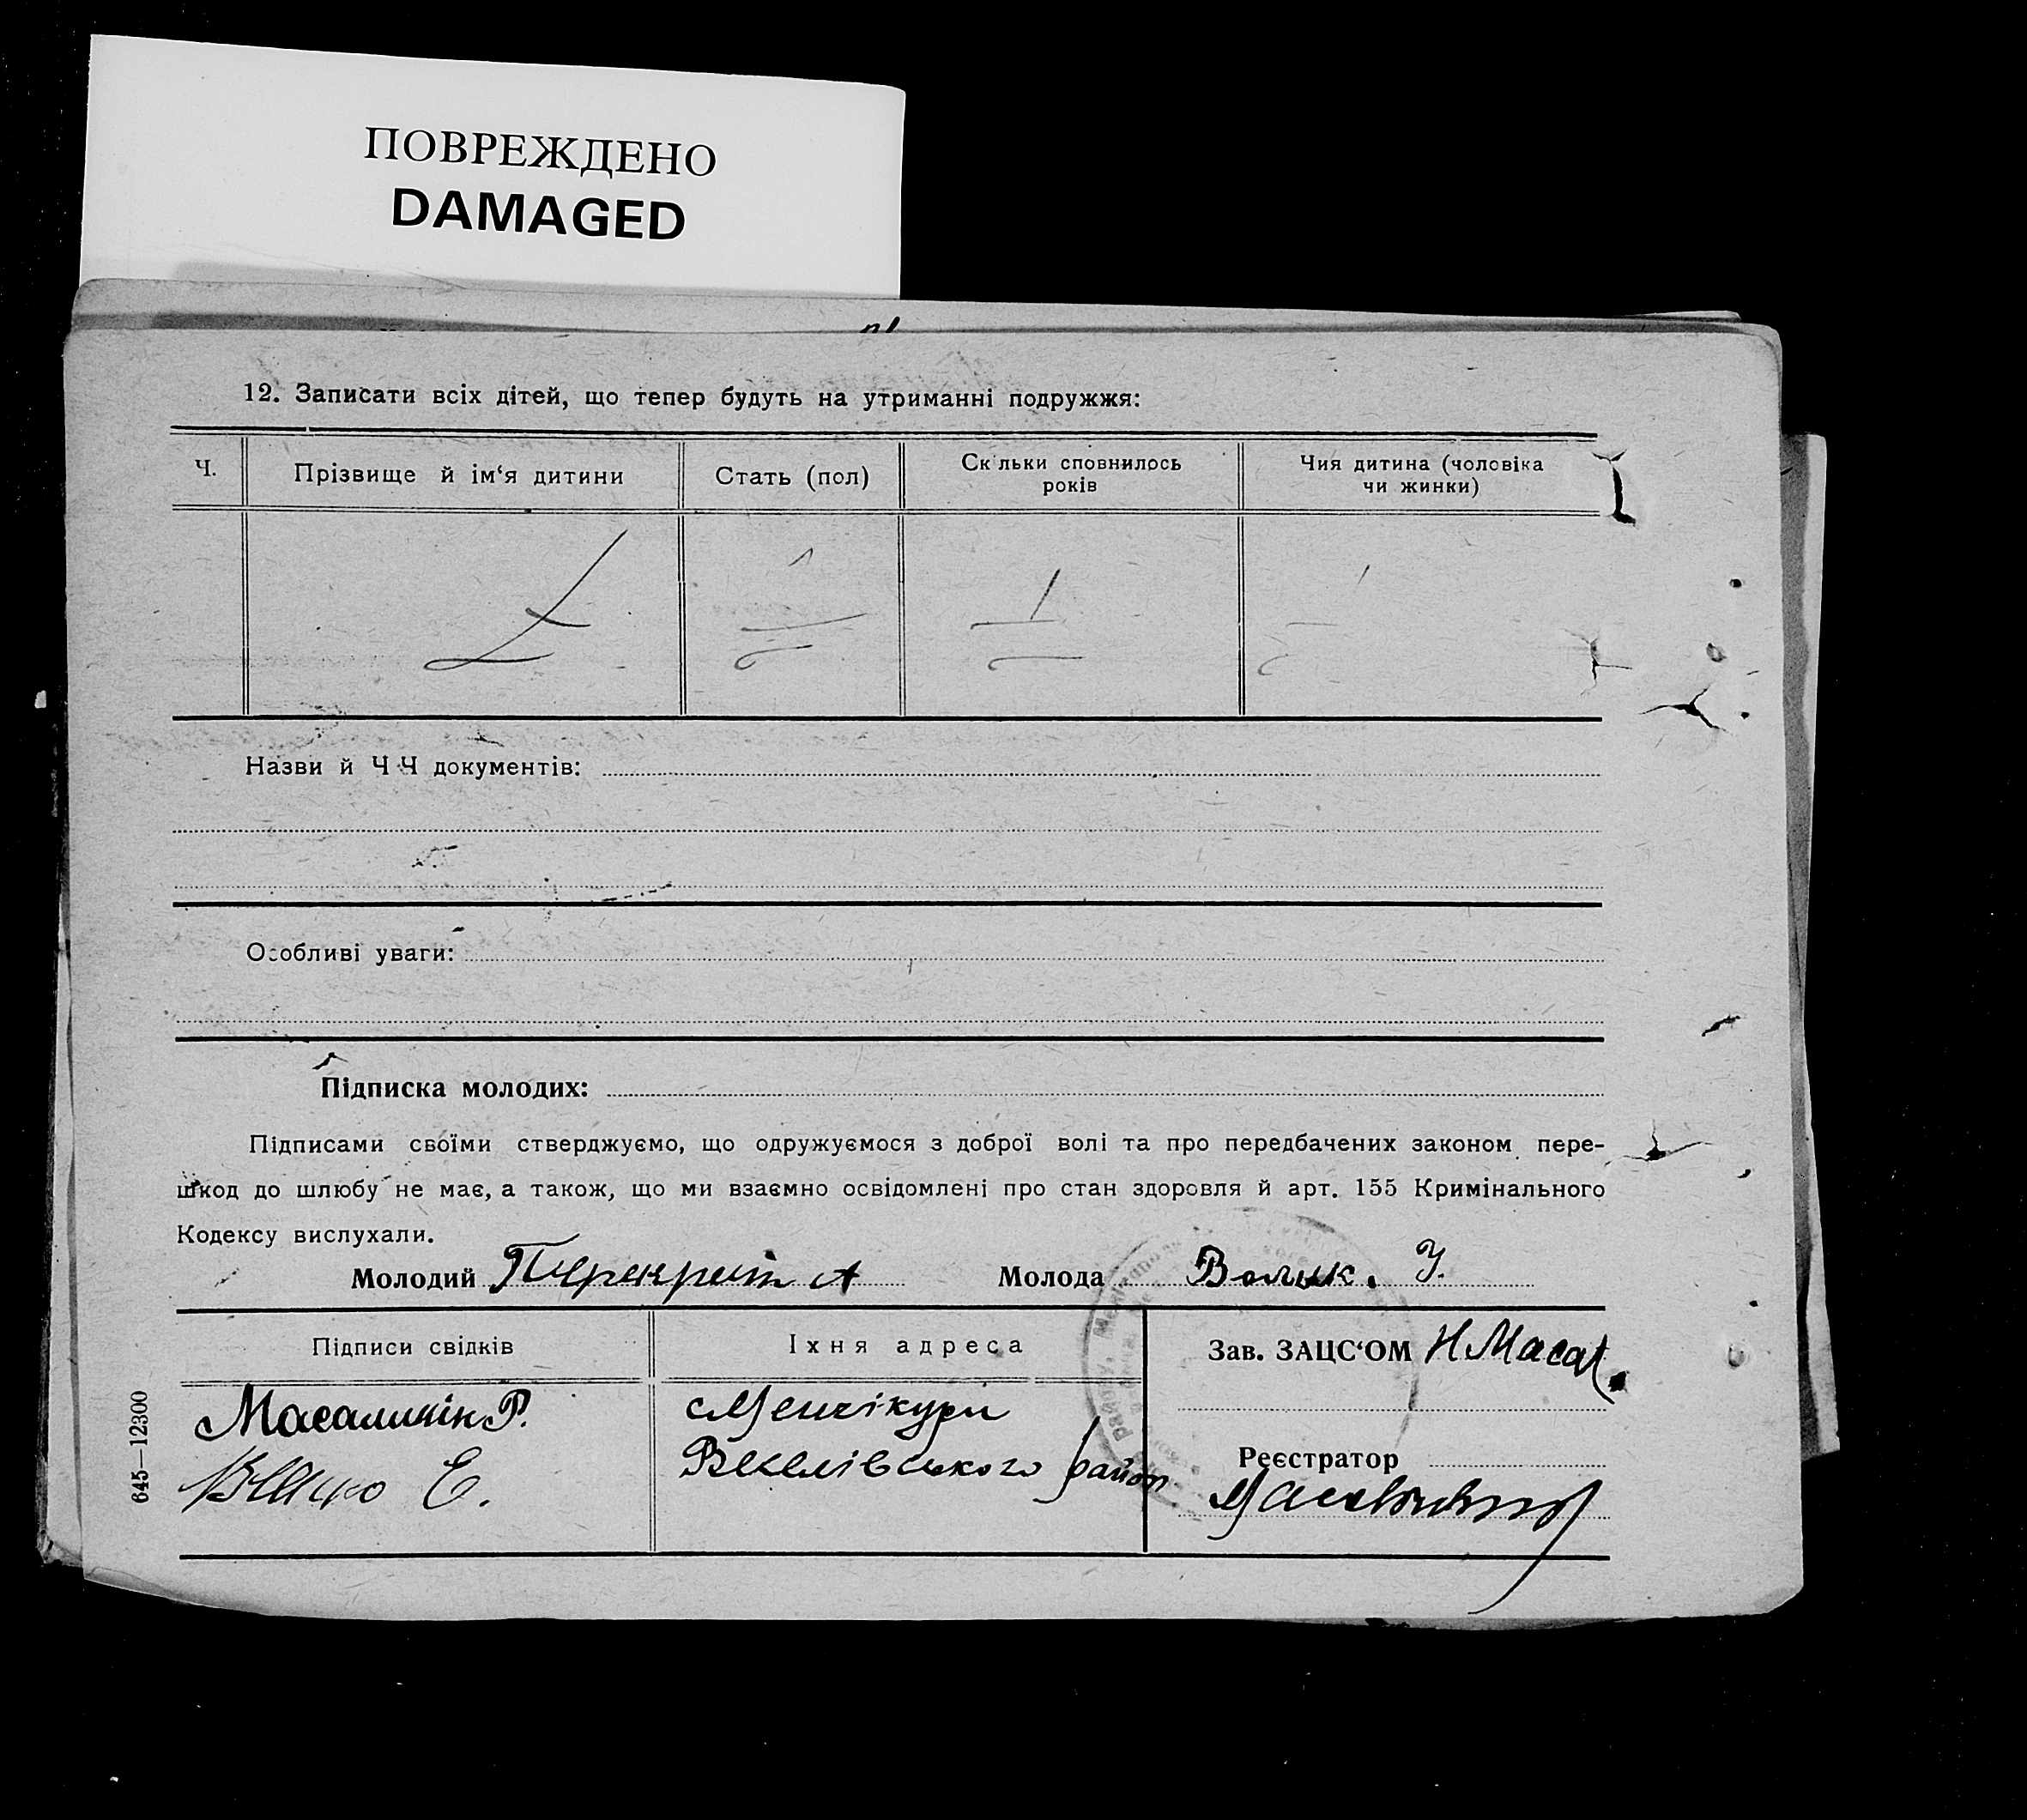 ПОВРЕЖДЕНО
DAMAGED
12. Записати всіх дітей, що тепер будуть на утриманні подружжя:
Ч.
Прізвище й ім‘я дитини
Стать (пол)
Скільки сповнилось
років
Чия дитина (чоловіка
чи жинки)
Назви й Ч Ч документів:
Особливі уваги:
Підписка молодих:
Підписами своїми стверджуємо, що одружуємося з доброї волі та про передбачених законом пере-
шкод до шлюбу не має, а також, що ми взаємно освідомлені про стан здоровля й арт. 155 Кримінального
Кодексу вислухали.
Молодий Перекрест А Молода Волик. У.
Підписи свідків
Їхня адреса
Зав. ЗАЦС‘ОМ Н Масал
Масалигін Р.
Менчікури
Веселівського район
Реєстратор
Е.
645—12300